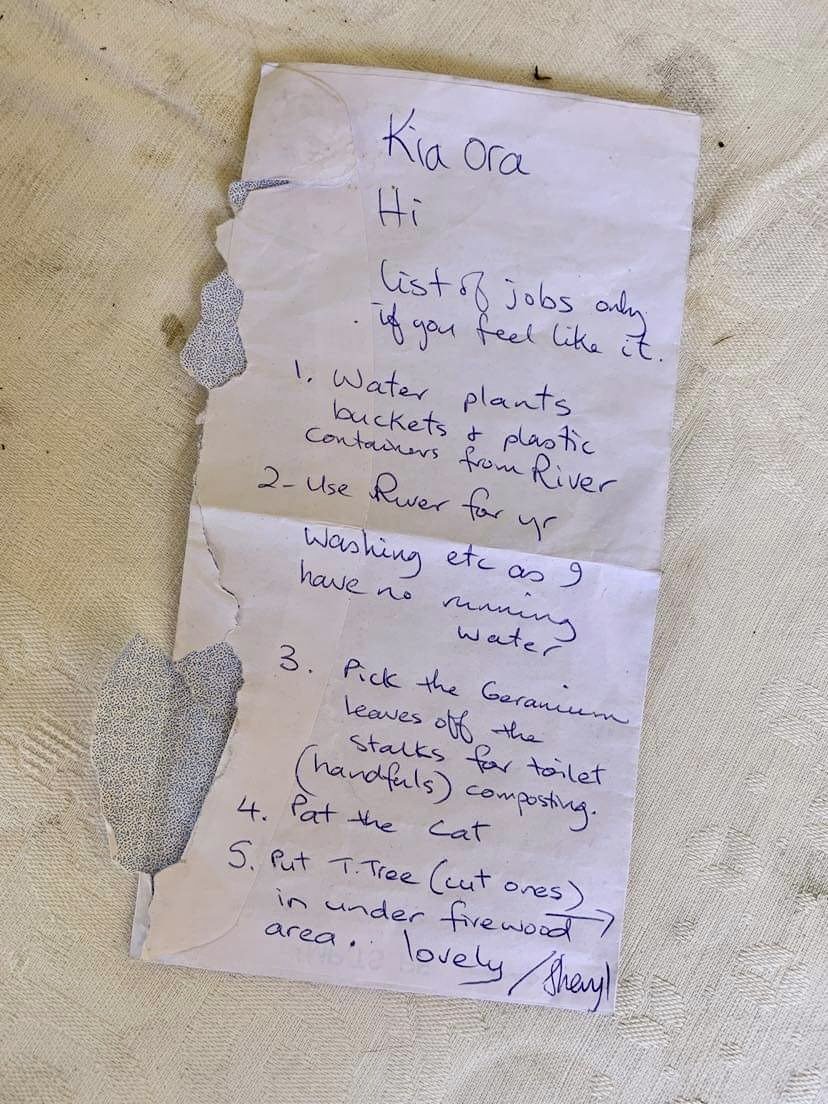 Kia Ora
Hi
List of jobs only
if you feel like it.
1. Water plants
buckets & plastic
containers from River
2- Use River for yr
washing etc as I
have no running
water
3. Pick the Geranium
leaves off the
stalks for toilet
(handfuls) composting.
4. Pat the Cat
5. Put T.Tree (cut ones) →
in under firewood
area.. lovely / Sheryl